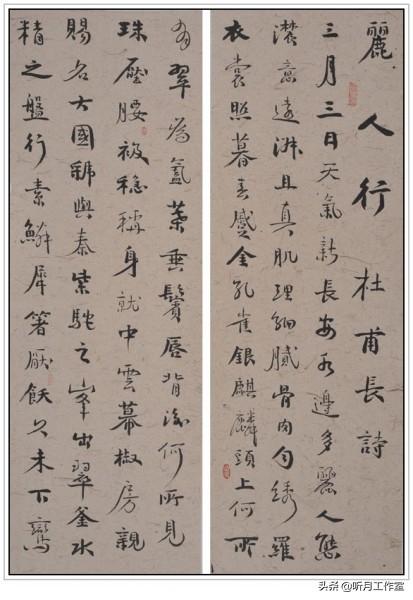 麗人行杜甫長詩
三月三日天氣新長安水邊多麗人態
濃意遠淑且真肌理細膩骨肉勻綉羅
衣裳照暮春蹙金孔雀銀麒麟頭上何所
有翠為葉垂鬢唇背後何所見
珠壓腰被穩稱身就中雲幕椒房親
賜名大國虢與秦紫駝之峰出翠釜水
精之盤行素鱗犀箸厭飫久未下鸞
头条 @听月工作室